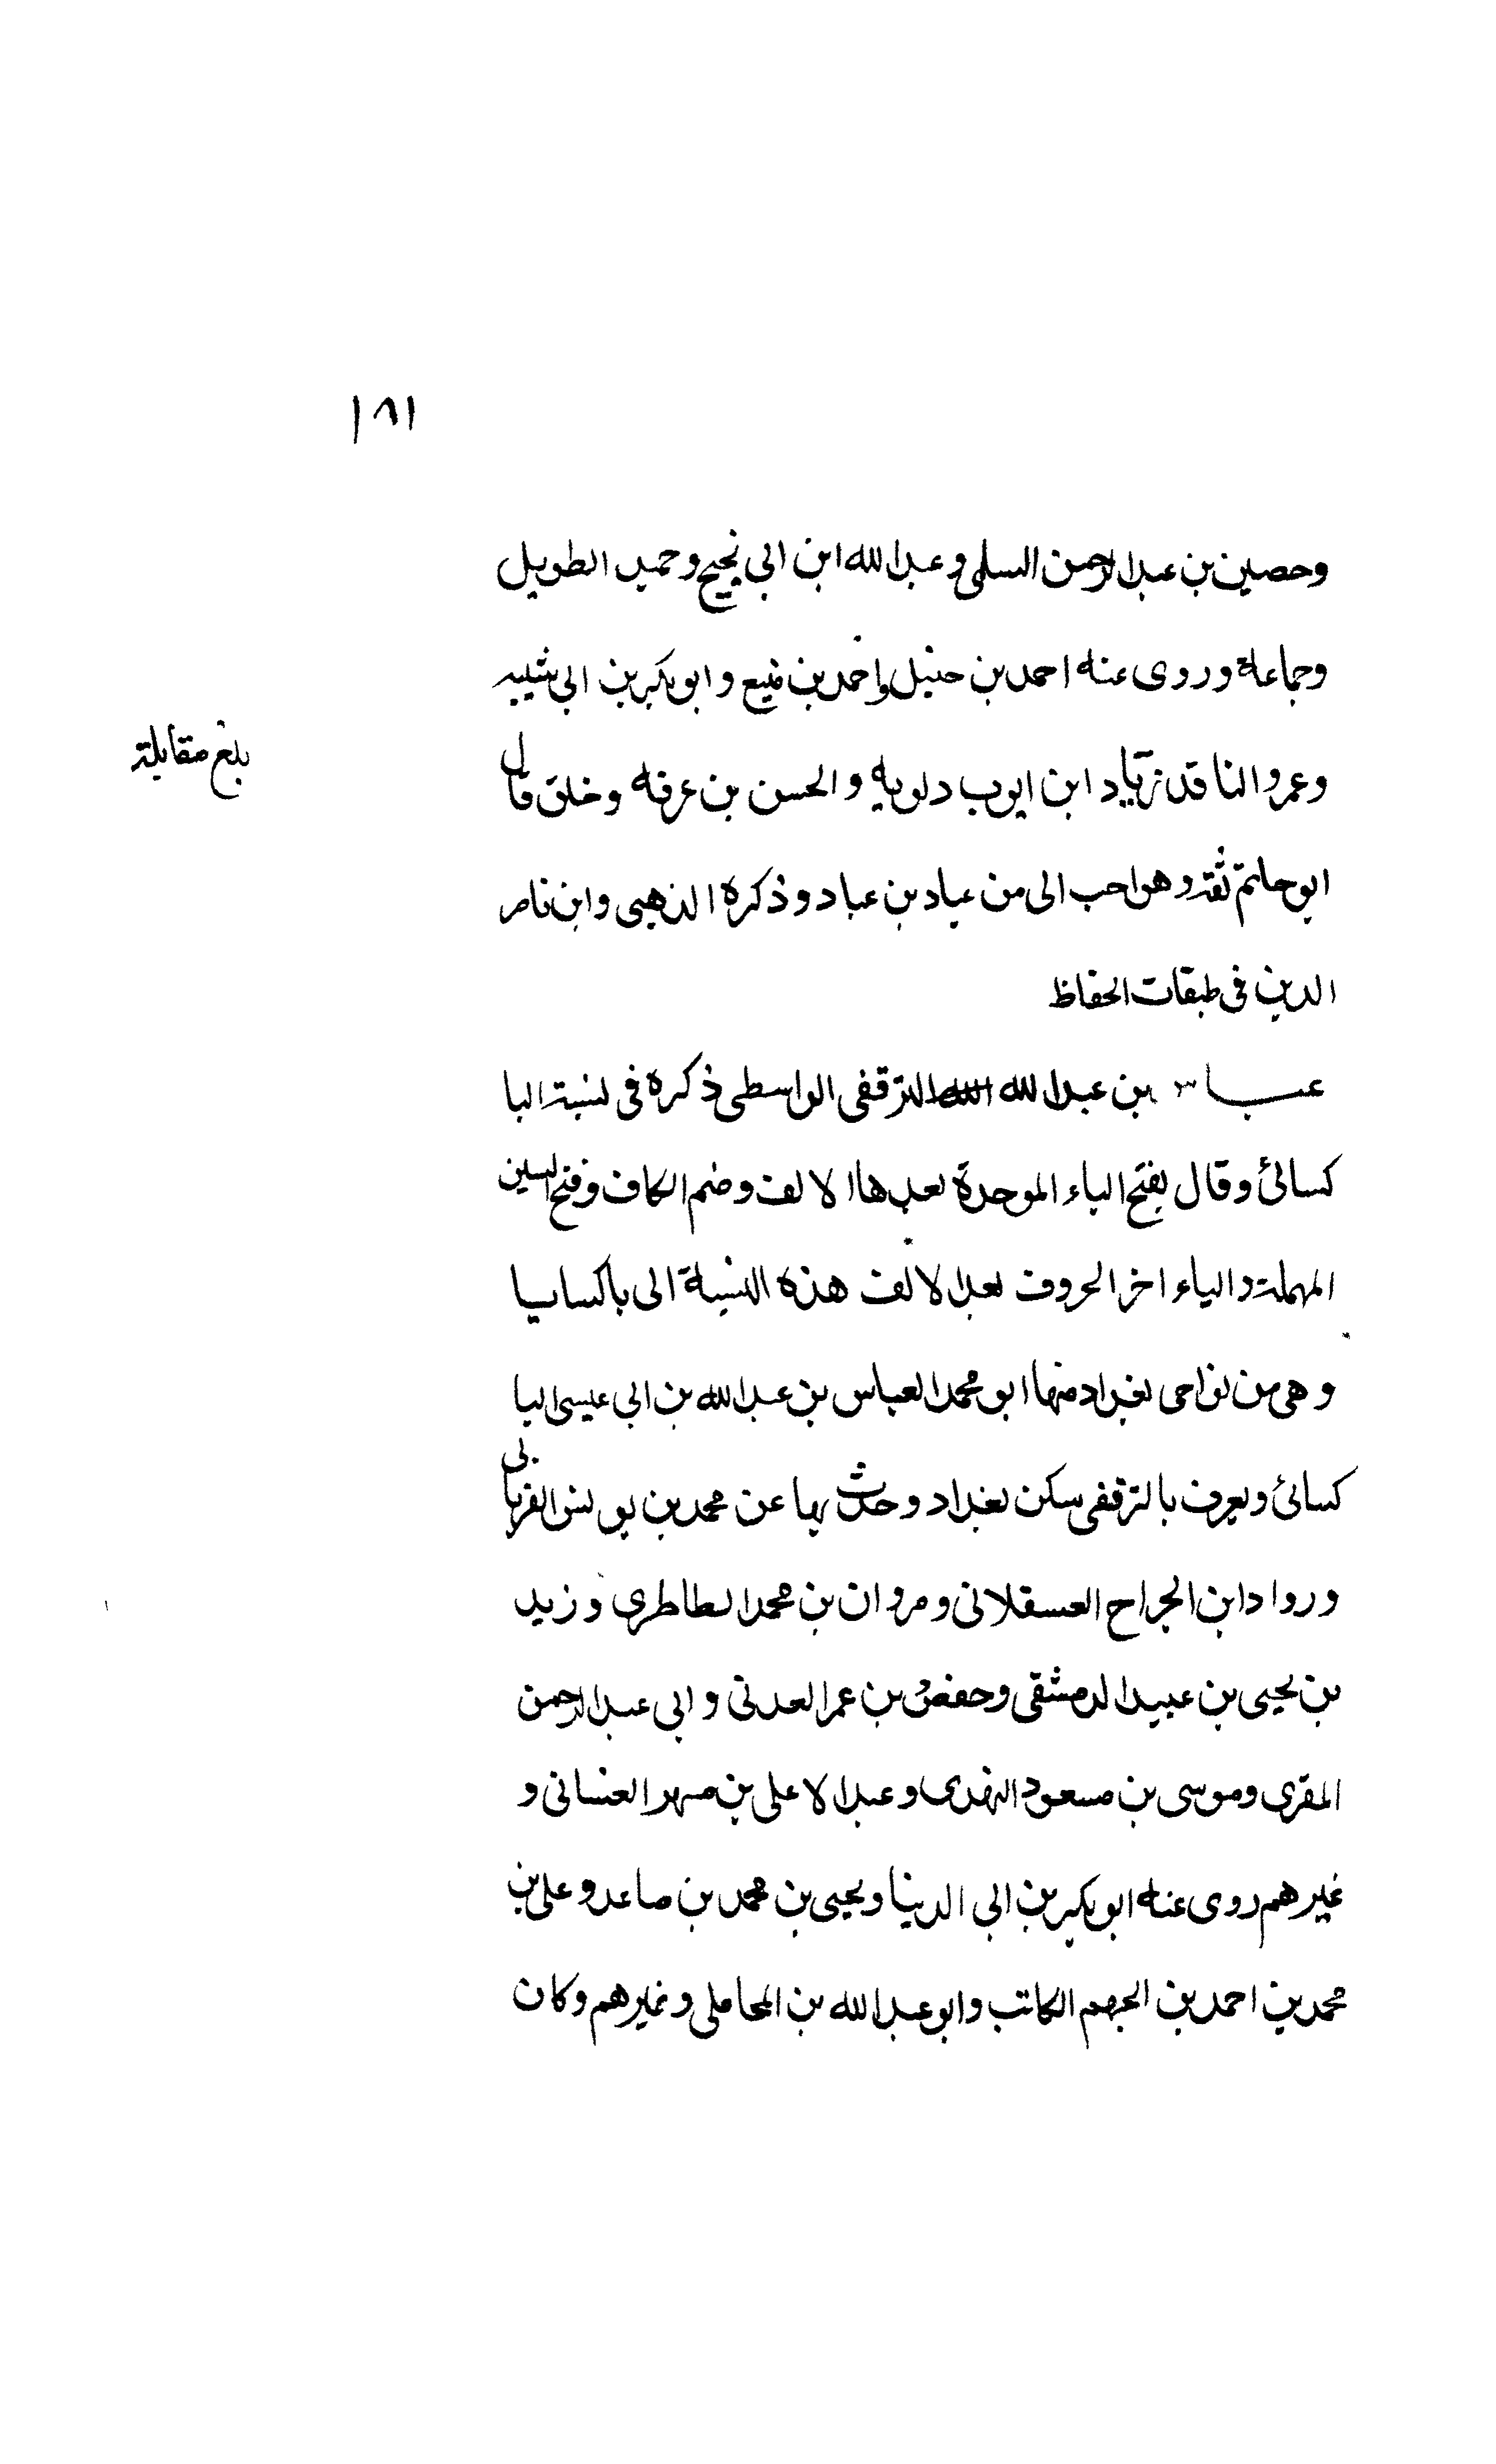 ١٨١
وحصين بن عبد الرحمن السلمى وعبد الله ابن ابي نجيح وحميد الطويل
وجماعة وروى عنه احمد بن حنبل واحمد بن منيع وابو بكر بن ابي شيبه
بلغ مقابلة
وعمرو الناقد زياد ابن ايوب دلويه والحسن بن عرفه وخلق قال
ابو حاتم ثقة وهو احب الى من عباد بن عباد وذكره الذهبى وابن ناصر
الدين فى طبقات الحفاظ
عباس بن عبد الله الترقفى الواسطى ذكره فى نسبة البا
كسائ وقال بفتح الباء الموحدة بعدها الالف وضم الكاف وفتح السين
المهملة والياء اخر الحروف بعد الالف هذه النسبة الى باكسايا
وهى من نواحى بغداد منها ابو محمد العباس بن عبد الله بن ابي عيسى البا
كسائ ويعرف بالترقفى سكن بغداد وحدث بها عن محمد بن يونس الفريابى
وروا دابن الجراح العسقلانى ومروان بن محمد الطاطرى وزيد
بن يحيى بن عبيد الدمشقى وحفص بن عمر العدنى وابي عبد الرحمن
المقرى وموسى بن مسعود النهدى وعبد الاعلى بن مسهر الغسانى و
غيرهم روى عنه ابو بكر بن ابي الدنيا ويحيى بن محمد بن صاعد وعلى بن
محمد بن احمد بن الجهم الكاتب وابو عبد الله بن المحاملى وغيرهم وكان